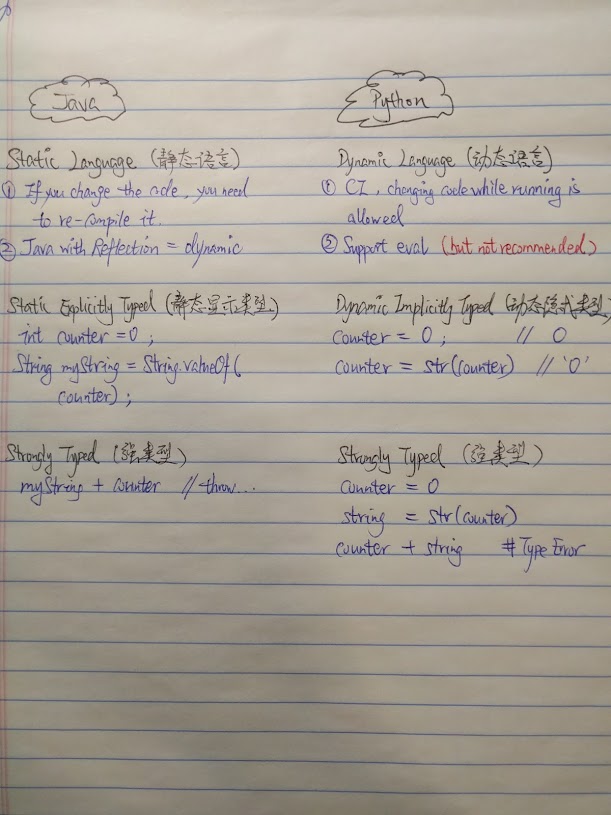 Java
Static Language (静态语言)
① If you change the code, you need
to re-compile it.
② Java with Reflection = dynamic
Static Explicitly Typed (静态显示类型)
int counter = 0 ;
String myString = String.valueOf(
counter) ;
Strongly Typed (强类型)
myString + counter // throw...
Python
Dynamic Language (动态语言)
① CI, changing code while running is
allowed
② Support eval (but not recommended)
Dynamic Implicitly Typed (动态隐式类型)
counter = 0 ; // 0
counter = str(counter) // '0'
Strongly Typed (强类型)
counter = 0
string = str(counter)
counter + string # Type Error